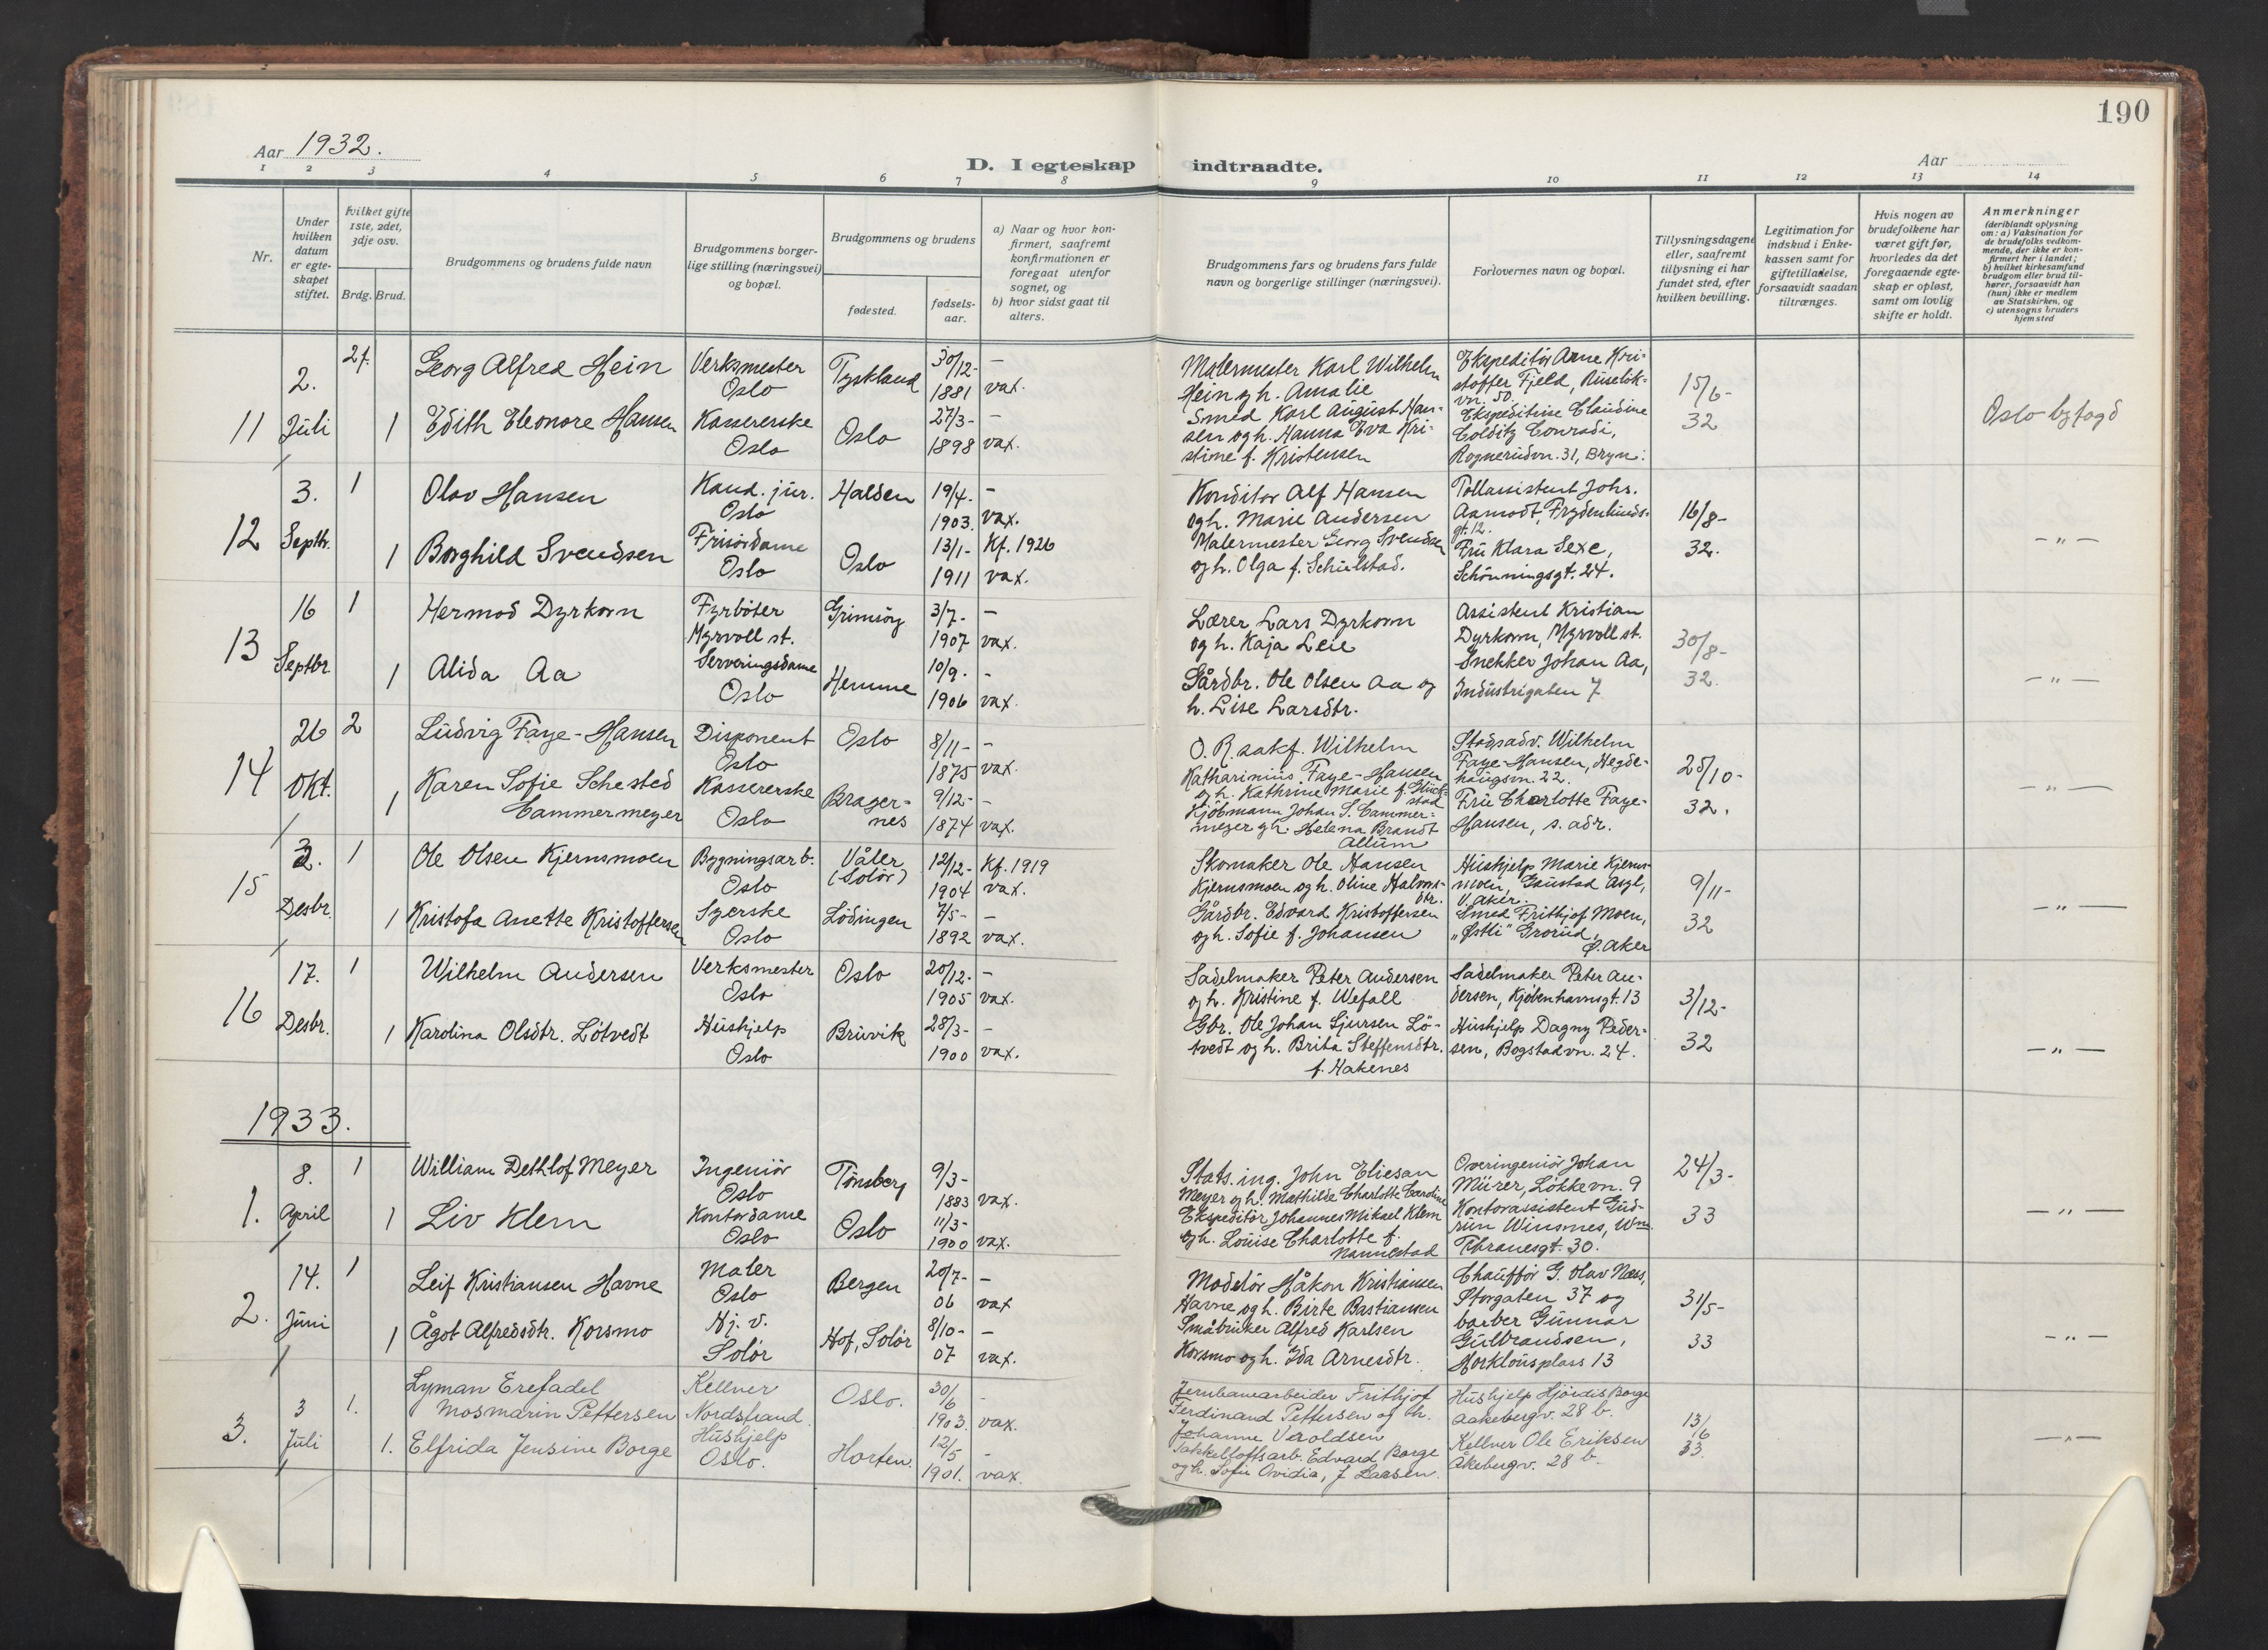 190
Aar 1932.
D. I egteskap indtraadte.
Aar
1 2 3 4 5 6 7 8 9 10 11 12 13 14
Nr.
Under hvilken datum er egteskapet stiftet.
hvilket gifte 1ste, 2det, 3dje osv.
Brdg. Brud.
Brudgommens og brudens fulde navn
Brudgommens borgerlige stilling (næringsvei) og bopæl.
Brudgommens og brudens
fødested.
fødselsaar.
a) Naar og hvor konfirmert, saafremt konfirmationen er foregaat utenfor sognet, og
b) hvor sidst gaat til alters.
Brudgommens fars og brudens fars fulde navn og borgerlige stillinger (næringsvei).
Forlovernes navn og bopæl.
Tillysningsdagene eller, saafremt tillysning ei har fundet sted, efter hvilken bevilling.
Legitimation for indskud i Enkekassen samt for giftetilladelse, forsaavidt saadan tiltrænges.
Hvis nogen av brudefolkene har været gift før, hvorledes da det foregaaende egteskap er opløst, samt om lovlig skifte er holdt.
Anmerkninger
(deriblandt oplysning om: a) Vaksination for de brudefolks vedkommende, der ikke er konfirmert her i landet; b) hvilket kirkesamfund brudgom eller brud tilhører, forsaavidt han (hun) ikke er medlem av Statskirken, og c) utensogns bruders hjemsted
11
2. Juli
2f.
Georg Alfred Hein
Verksmester
Oslo
Tyskland
30/12-
1881
–
vax.
Malermester Karl Wilhelm
Hein og h. Amalie
Ekspeditör Arne Kri-
stoffer Fjeld, Ruselök-
vn. 50.
15/6-
32
Oslo byfogd
1
Edith Eleonore Hansen
Kassererske
Oslo
Oslo
27/3-
1898
–
vax.
Smed Karl August Han-
sen og h. Hanna Eva Kri-
stine f. Kristensen
Ekspeditrise Claudine
Colditz Conradi,
Rognerudvn. 31, Bryn.
12
3. Septbr.
1
Olav Hansen
Kand. jur.
Oslo
Halden
19/4-
1903.
–
vax.
Konditor Alf Hansen
og h. Marie Andersen
Tollassistent Johs.
Aamodt, Frydenlunds-
gt. 12.
16/8-
32.
– " –
1
Borghild Svendsen
Frisördame
Oslo
Oslo
13/1-
1911
Kf. 1926
vax.
Malermester Georg Svendsen
og h. Olga f. Schulstad.
Fru Klara Sexe,
Schönningsgt. 24.
13
16 Septbr.
1
Hermod Dyrkorn
Fyrböter
Myrvoll st.
Grimsöy
3/7-
1907
–
vax.
Lærer Lars Dyrkorn
og h. Kaja Leie
Assistent Kristian
Dyrkorn, Myrvoll st.
30/8-
32.
– " –
1
Alida Aa
Serveringsdame
Oslo
Hemne
10/9-
1906
–
vax.
Gårdbr. Ole Olsen Aa og
h. Lise Larsdtr.
Snekker Johan Aa,
Industrigaten 7
14
26 Okt.
2
Ludvig Faye-Hansen
Disponent
Oslo
Oslo
8/11-
1875
–
vax.
O. R. sakf. Wilhelm
Katharinius Faye-Hansen
og h. Kathrine Marie f. Glück-
stad
Stadsadv. Wilhelm
Faye-Hansen, Hegde-
haugsvn. 22.
25/10-
32.
– " –
1
Karen Sofie Schested
Cammermeyer
Kassererske
Oslo
Brager-
nes
9/12-
1874
–
vax.
Kjöbmann Johan S. Cammer-
meyer og h. Helena Brandt
Allum
Fru Charlotte Faye-
Hansen, s. adr.
15
3. Desbr.
1
Ole Olsen Kjernsmoen
Bygningsarb.
Oslo
Våler
(Solör)
12/12-
1904
Kf. 1919
vax.
Skomaker Ole Hansen
Kjernsmoen og h. Oline Halvors-
dtr.
Hushjelp Marie Kjerns-
moen, Gaustad Asyl,
V. Aker.
9/11-
32
– " –
1
Kristofa Anette Kristoffersen
Syerske
Oslo
Lödingen
7/5-
1892
–
vax.
Gårdbr. Edvard Kristoffersen
og h. Sofie f. Johansen
Smed Frithjof Moen,
"Østli" Grorud,
Ø. Aker
16
17. Desbr.
1
Wilhelm Andersen
Verksmester
Oslo
Oslo
20/12-
1905
–
vax.
Sadelmaker Peter Andersen
og h. Kristine f. Wefall
Sadelmaker Peter An-
dersen, Kjöbenhavnsgt. 13
3/12-
32
– " –
1
Karolina Olsdtr. Lötvedt
Hushjelp
Oslo
Bruvik
28/3-
1900
–
vax.
Gbr. Ole Johan Sjursen Lö-
tvedt og h. Brita Steffensdtr.
f. Hakenes
Hushjelp Dagny Peder-
sen, Bogstadvn. 24.
1933.
1.
8. April
1
William Dethlof Meyer
Ingeniör
Oslo
Tönsberg
9/3-
1883
vax.
Stats. ing. John Eliesan
Meyer og h. Mathilde Charlotte Caroline
Overingeniör Johan
Mürer, Lökkevn. 9
24/3-
33
– " –
1
Liv Klem
Kontordame
Oslo
Oslo
11/3-
1900
vax.
Ekspeditör Johannes Mikael Klem
og h. Louise Charlotte f.
Nannestad
Kontorassistent Gud-
run Winsnes, Wm.
Thranesgt. 30.
2.
14. Juni
1
Leif Kristiansen Havne
Maler
Oslo
Bergen
20/7-
06
–
vax
Modelör Håkon Kristiansen
Havne og h. Birte Bastiansen
Chauffför G. Olav Næss,
Storgaten 37 og
31/5-
33
– " –
1
Ågot Alfredsdtr. Korsmo
Hj. v.
Solör
Hof, Solör
8/10-
07
–
vax.
Småbruker Alfred Karlsen
Korsmo og h. Ida Arnesdtr.
barber Gunnar
Gulbrandsen,
Herklousplass 13
3.
3 Juli
1.
Lyman Erefadel
Mosmarin Pettersen
Kellner
Nordstrand.
Oslo.
30/6
1903.
-
vax.
Jernbanearbeider Frithjof
Ferdinand Pettersen og h.
Johanne Veroldsen
Hushjelp Hjördis Borge
Aakebergv. 28 b.
13/6
33.
– " –
1.
Elfrida Jensine Borge
Hushjelp
Oslo.
Horten.
12/5
1901.
-
vax.
Takkelloftsarb. Edvard Borge
og h. Sofie Ovidia, f Larsen.
Kellner Ole Eriksen
Åkebergv. 28 b.